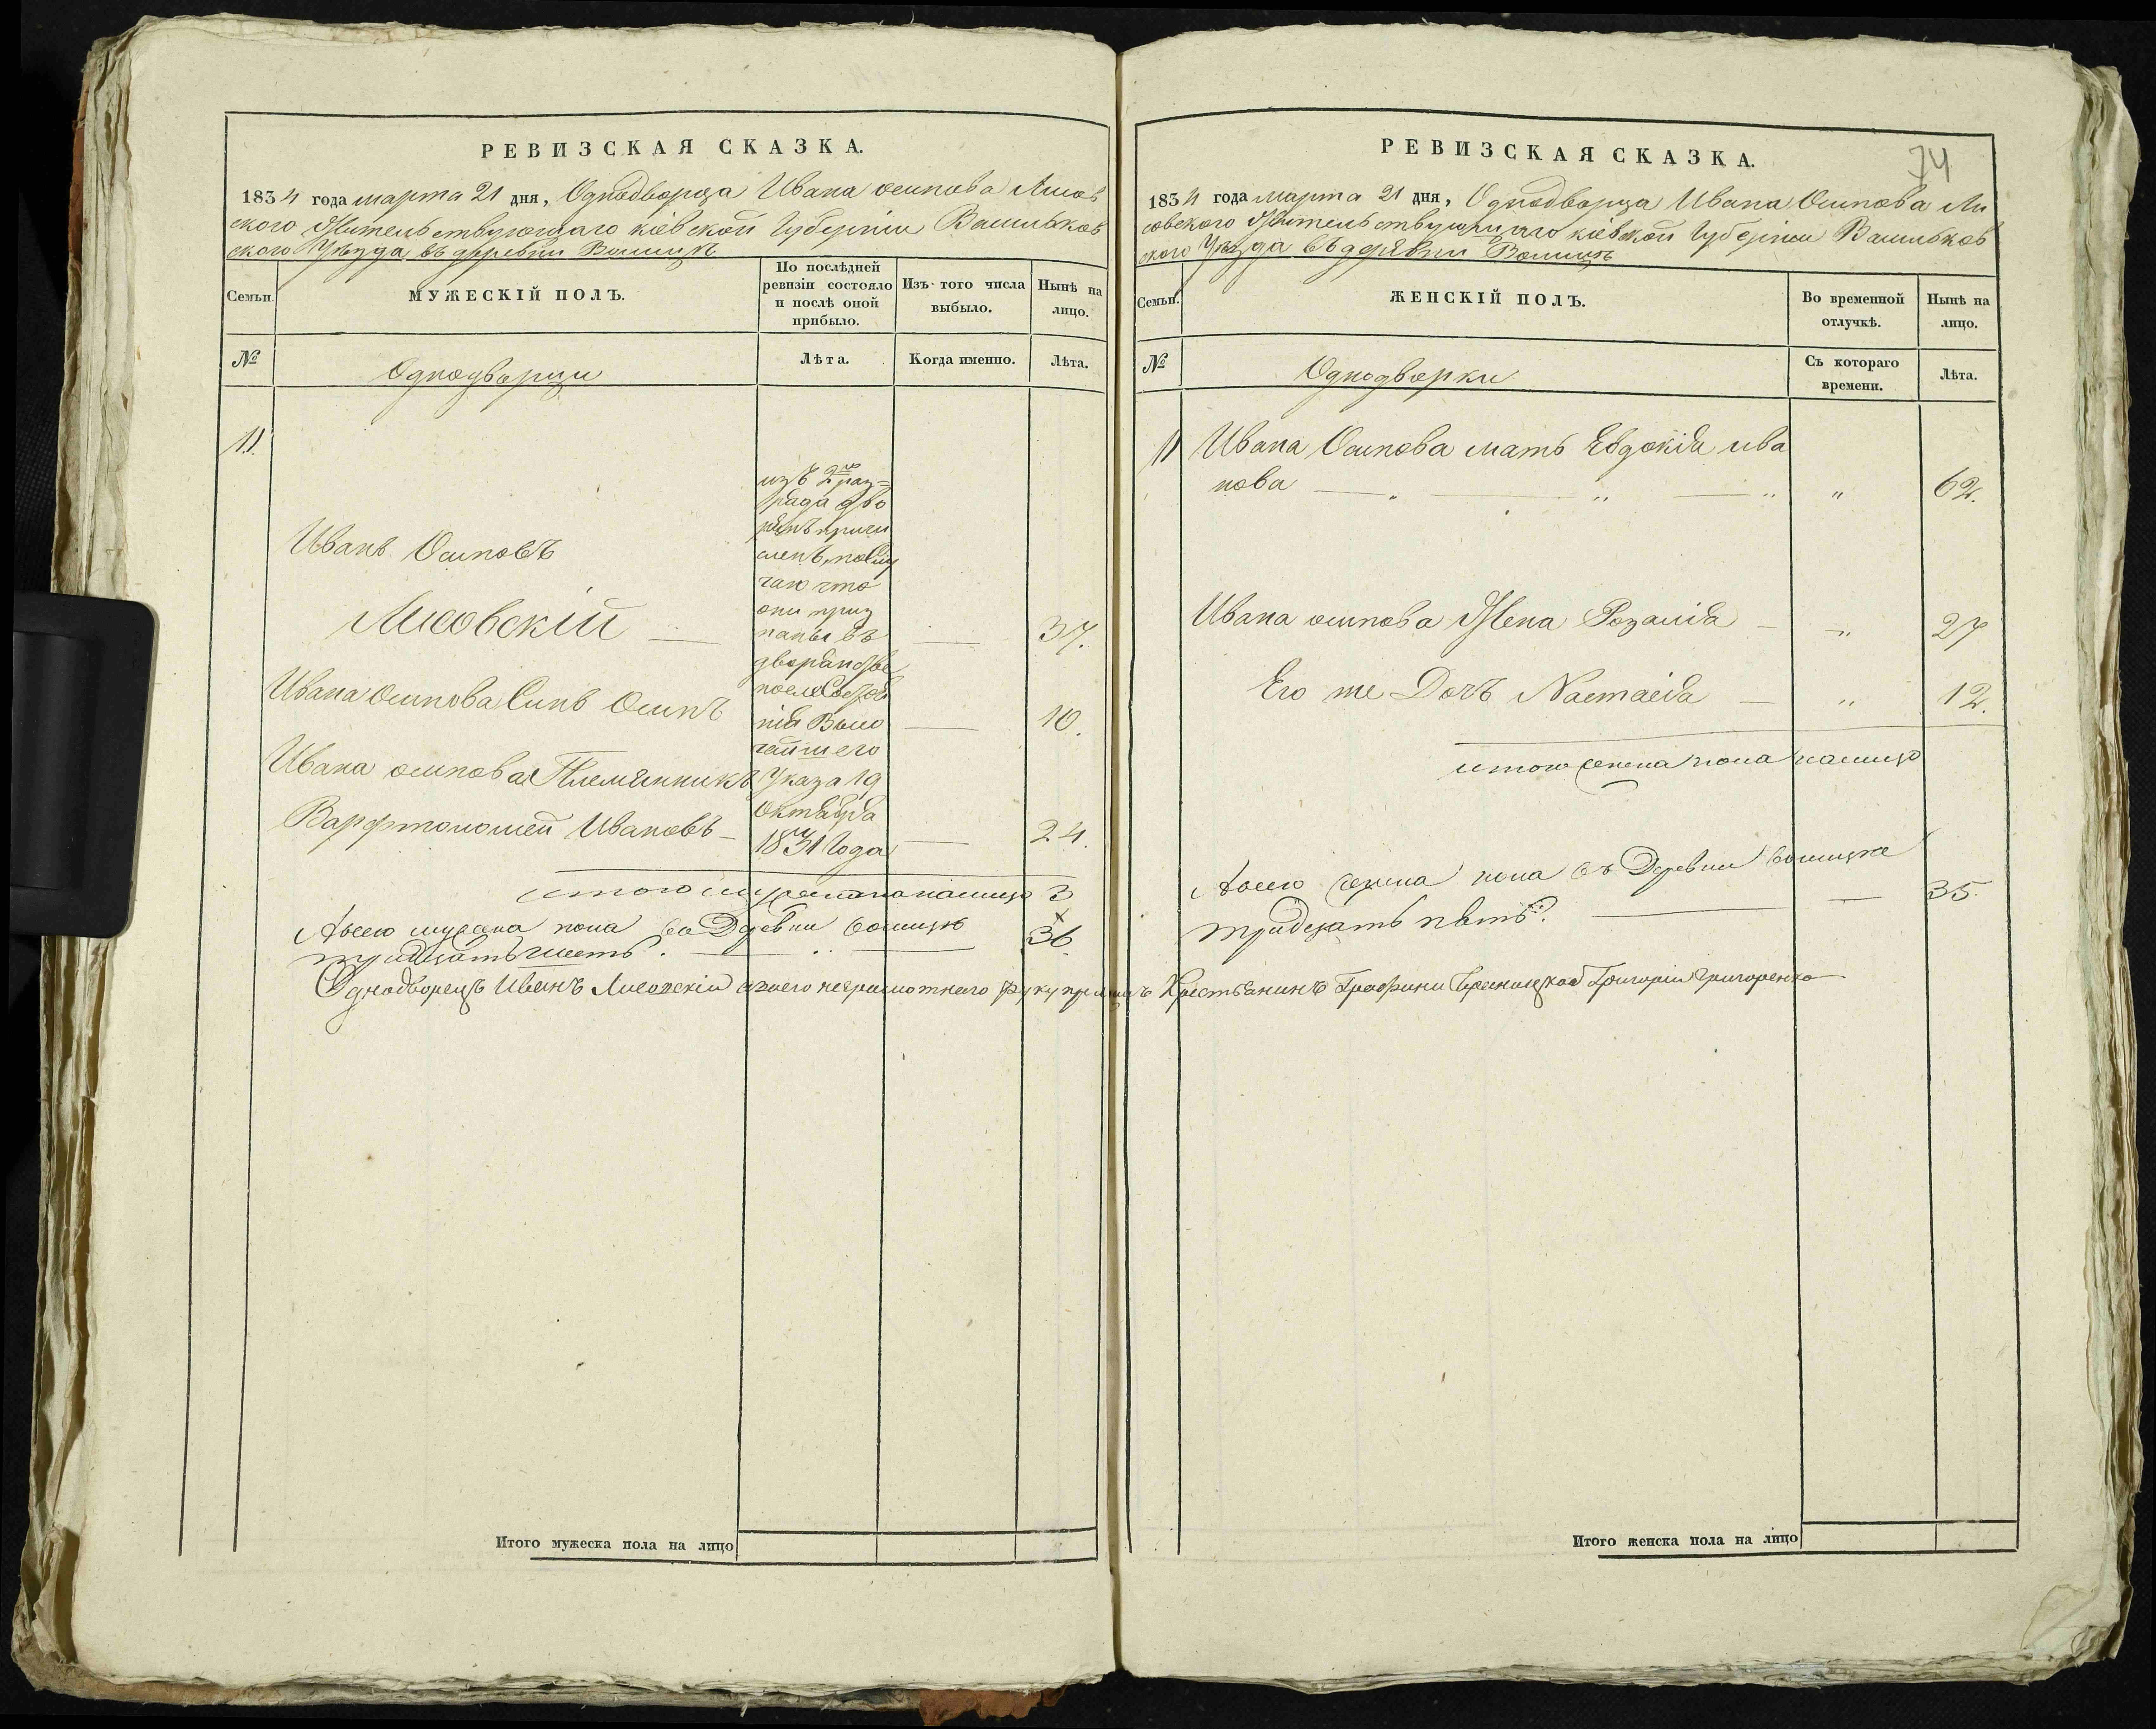 РЕВИЗСКАЯ СКАЗКА.
1834 года марта 21 дня, Однодворца Ивана осипова Лисов
ского Жительствующаго кіевской Губерніи Васильков
ского Уѣзда въ деревни
Семьи.
МУЖЕСКІЙ ПОЛЪ.
По послѣдней ревизіи состояло и послѣ оной прибыло.
Изъ того числа выбыло.
Нынѣ на лицо.
№
Однодворци
Лѣта.
Когда именно.
Лѣта.
11.
изъ 2го раз=
ряда дво
рянъ причи
сленъ, послу
чаю что
они приз
наны въ
дворянстве
после Состоя
нія Высо
чайшего
Указа 19
Октября
1831 Года
Иванъ Осиповъ
Лисовскій — — 37.
Ивана Осипова Синъ Осипъ — 10.
Ивана осипова Племянникъ
Варфтоломей Ивановъ — — 24.
итого мужеска пола налицо 3
Авсего мужска пола въ Деревни 36
тридцать шесть.
Однодворецъ Иванъ Лисовскій а вместо его неграмотнаго руку приложилъ Крестьянинъ Графини Браницкой Григорій Григоренко
РЕВИЗСКАЯ СКАЗКА.
74
1834 года марта 21 дня, Однодворца Ивана Осипова Ли
совского Жительствующаго кіевской Губерніи Васильков
ского Уѣзда въ деревни
Семьи.
ЖЕНСКІЙ ПОЛЪ.
Во временной отлучкѣ.
Нынѣ на лицо.
№
Однодворки
Съ котораго времени.
Лѣта.
11 Ивана Осипова мать Евдокія ива
нова — " — " — " " 62.
Ивана осипова Жена Розалія — " 27
Его же Дочъ Настасія — " 12.
итого женска пола налицо
Авсего женска пола въ Деревни
тридцать пять. — — 35.
Итого мужеска пола на лицо
Итого женска пола на лицо